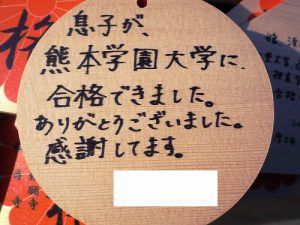 息子が、
熊本学園大学に、
合格できました。
ありがとうございました。
感謝してます。
格
合格